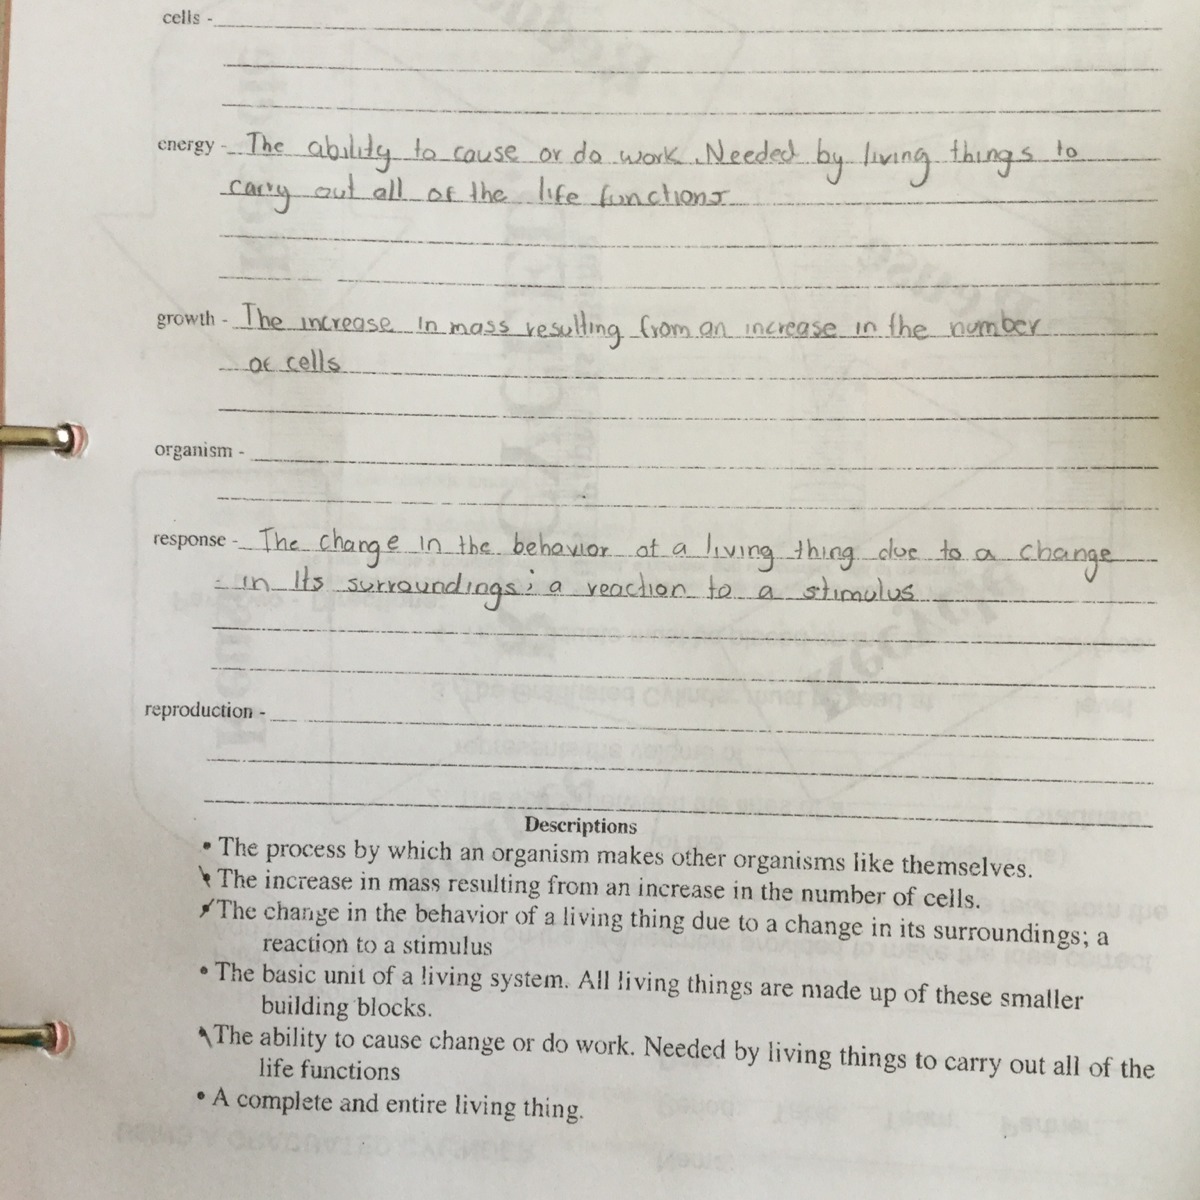 cells -
energy - The ability to cause or do work. Needed by living things to
carry out all of the life functions
growth - The increase in mass resulting from an increase in the number
of cells
organism -
response - The change in the behavior of a living thing due to a change
in its surroundings; a reaction to a stimulus
reproduction -
Descriptions
• The process by which an organism makes other organisms like themselves.
• The increase in mass resulting from an increase in the number of cells.
• The change in the behavior of a living thing due to a change in its surroundings; a
reaction to a stimulus
• The basic unit of a living system. All living things are made up of these smaller
building blocks.
• The ability to cause change or do work. Needed by living things to carry out all of the
life functions
• A complete and entire living thing.